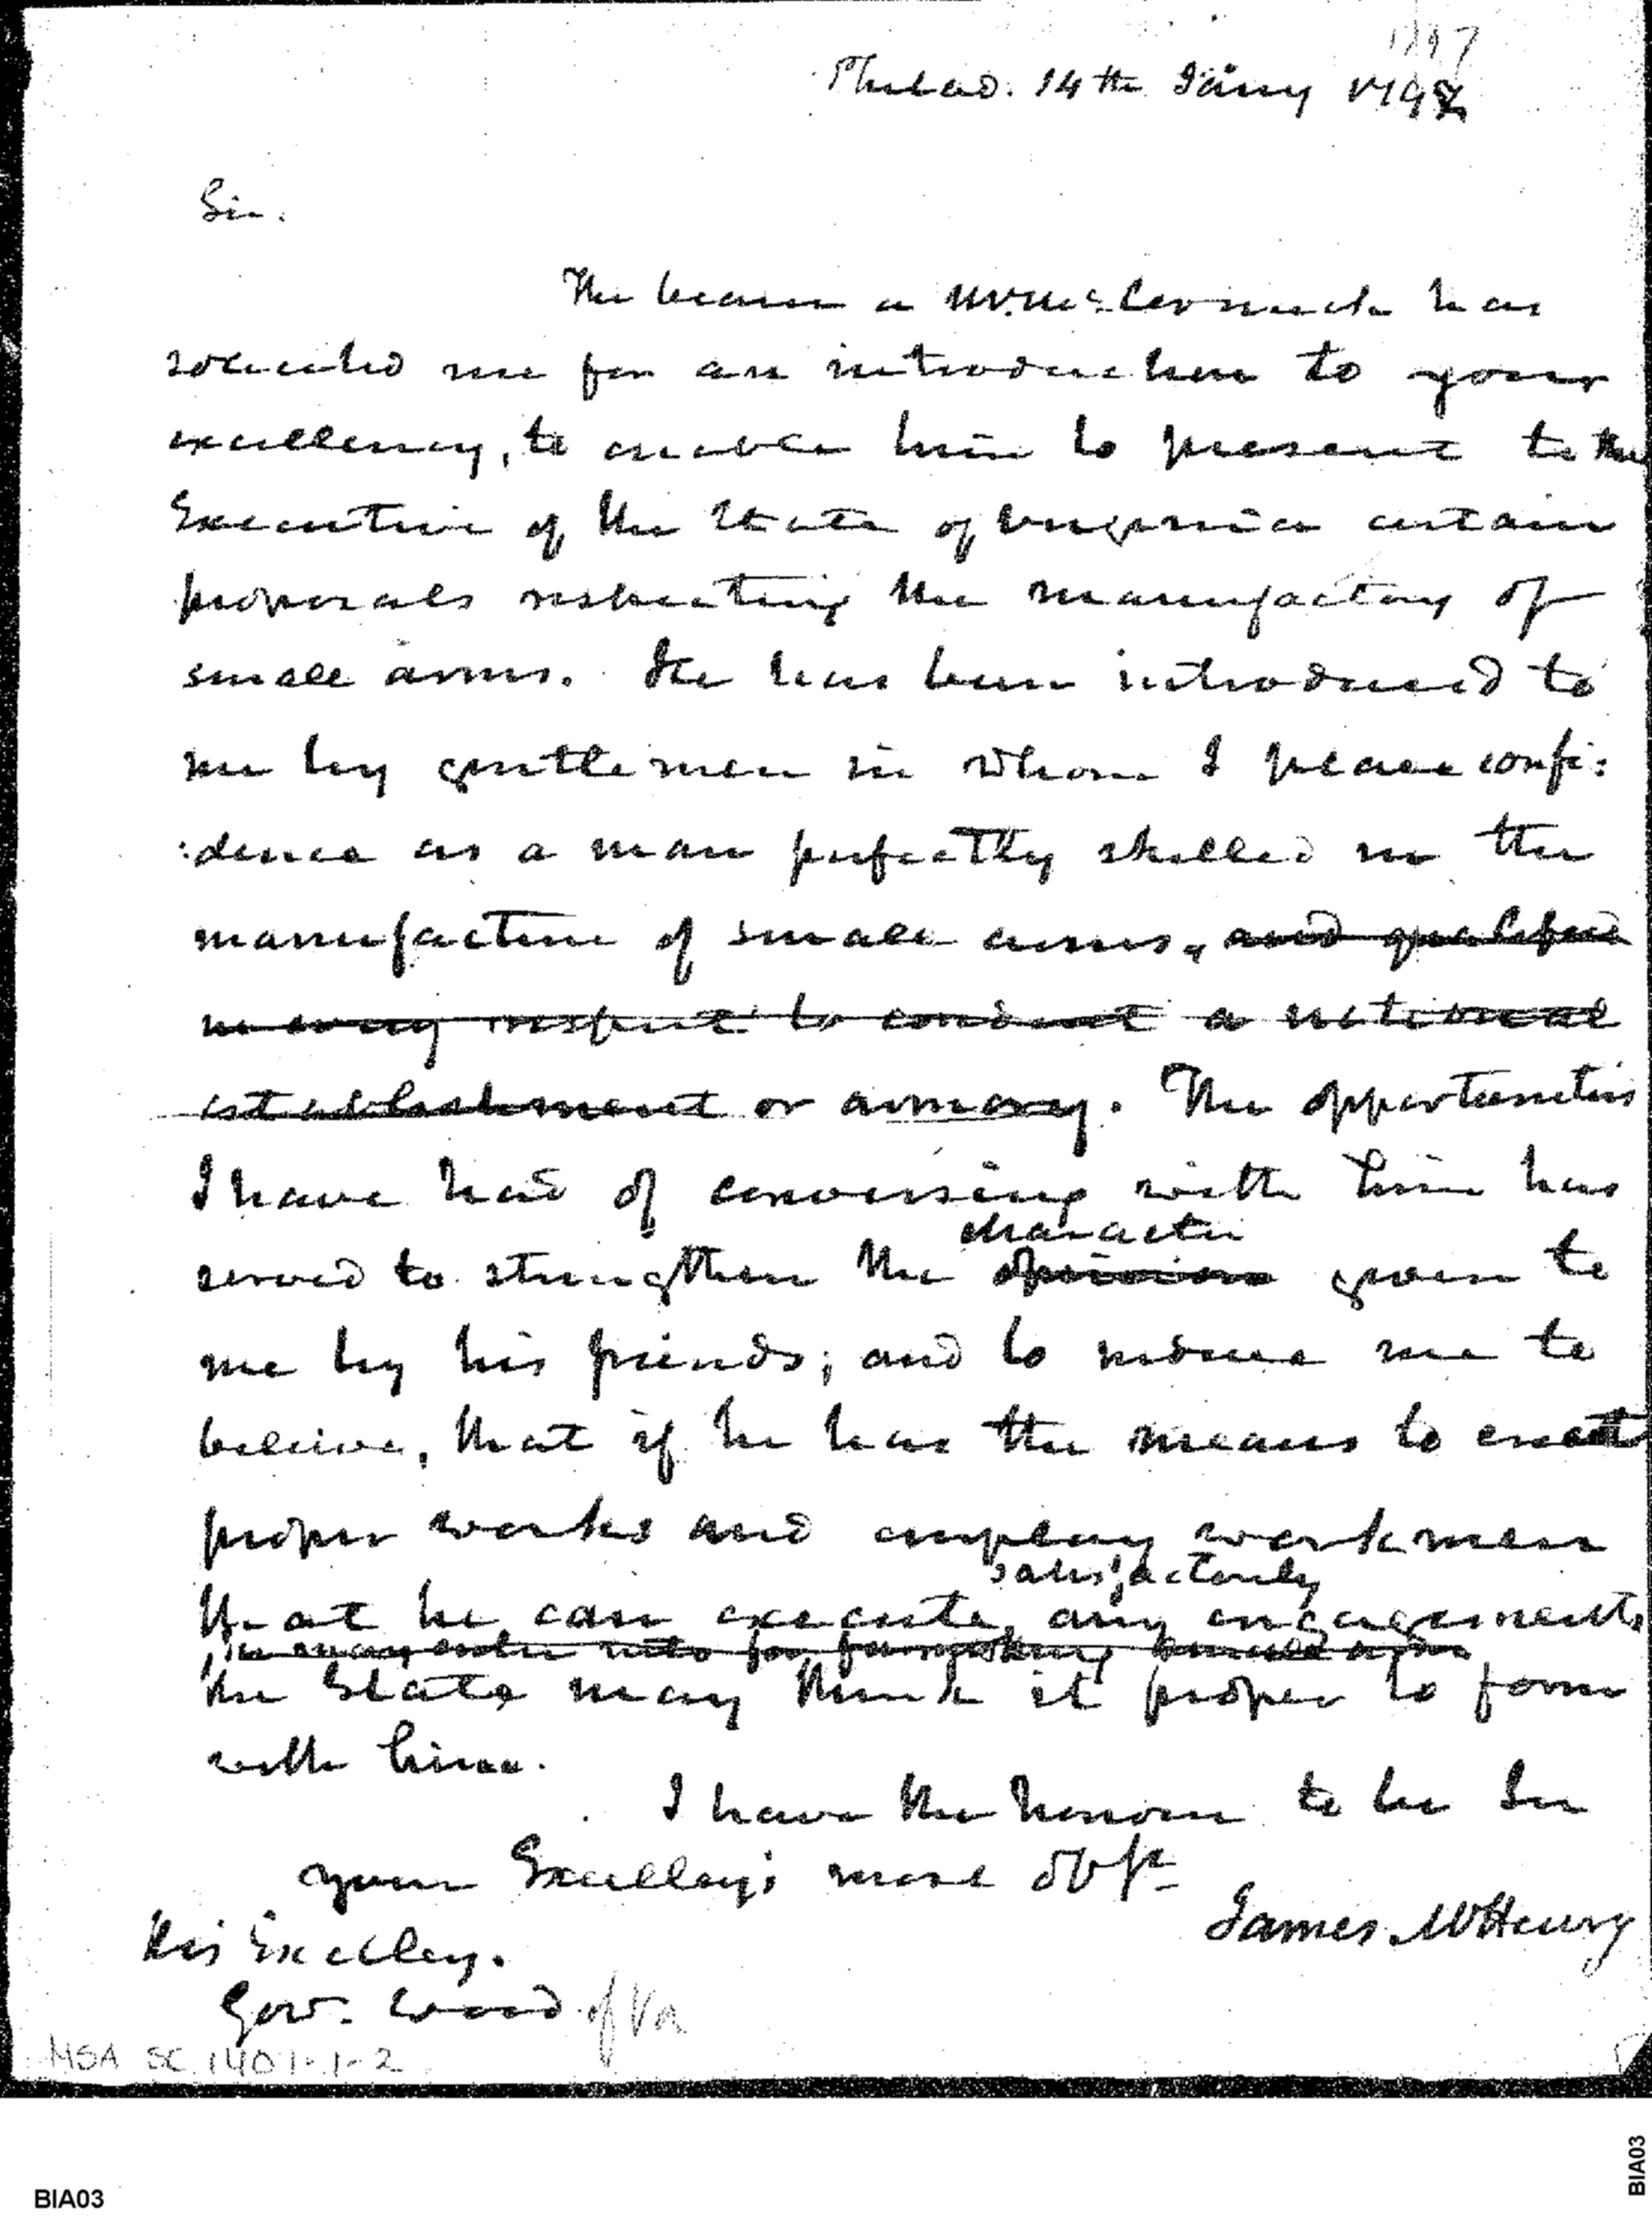 1797
Philad. 14th Jany 1797
Sir.
The bearer a Mr. McCormick has
solicited me for an introduction to your
excellency, to enable him to present to the
Executive of the State of Virginia certain
proposals respecting the manufactory of
small arms. He has been introduced to
me by gentlemen in whom I place confi:
:dence as a man perfectly skilled in the
manufacture of small arms, and qualified
in every respect to conduct a national
establishment or armory. The opportunities
I have had of conversing with him has
character
served to strengthen the opinion given to
me by his friends; and to induce me to
believe, that if he has the means to erect
proper works and employ workmen
satisfactorily
that he can execute any engagements
he may enter into for furnishing small arms
the State may think it proper to form
with him.
I have the honour to be Sir
your Excelley's most obt
James McHenry
His Excelley.
Govr. Wood of Va
MSA SC 1401-1-2
BIA03
BIA03